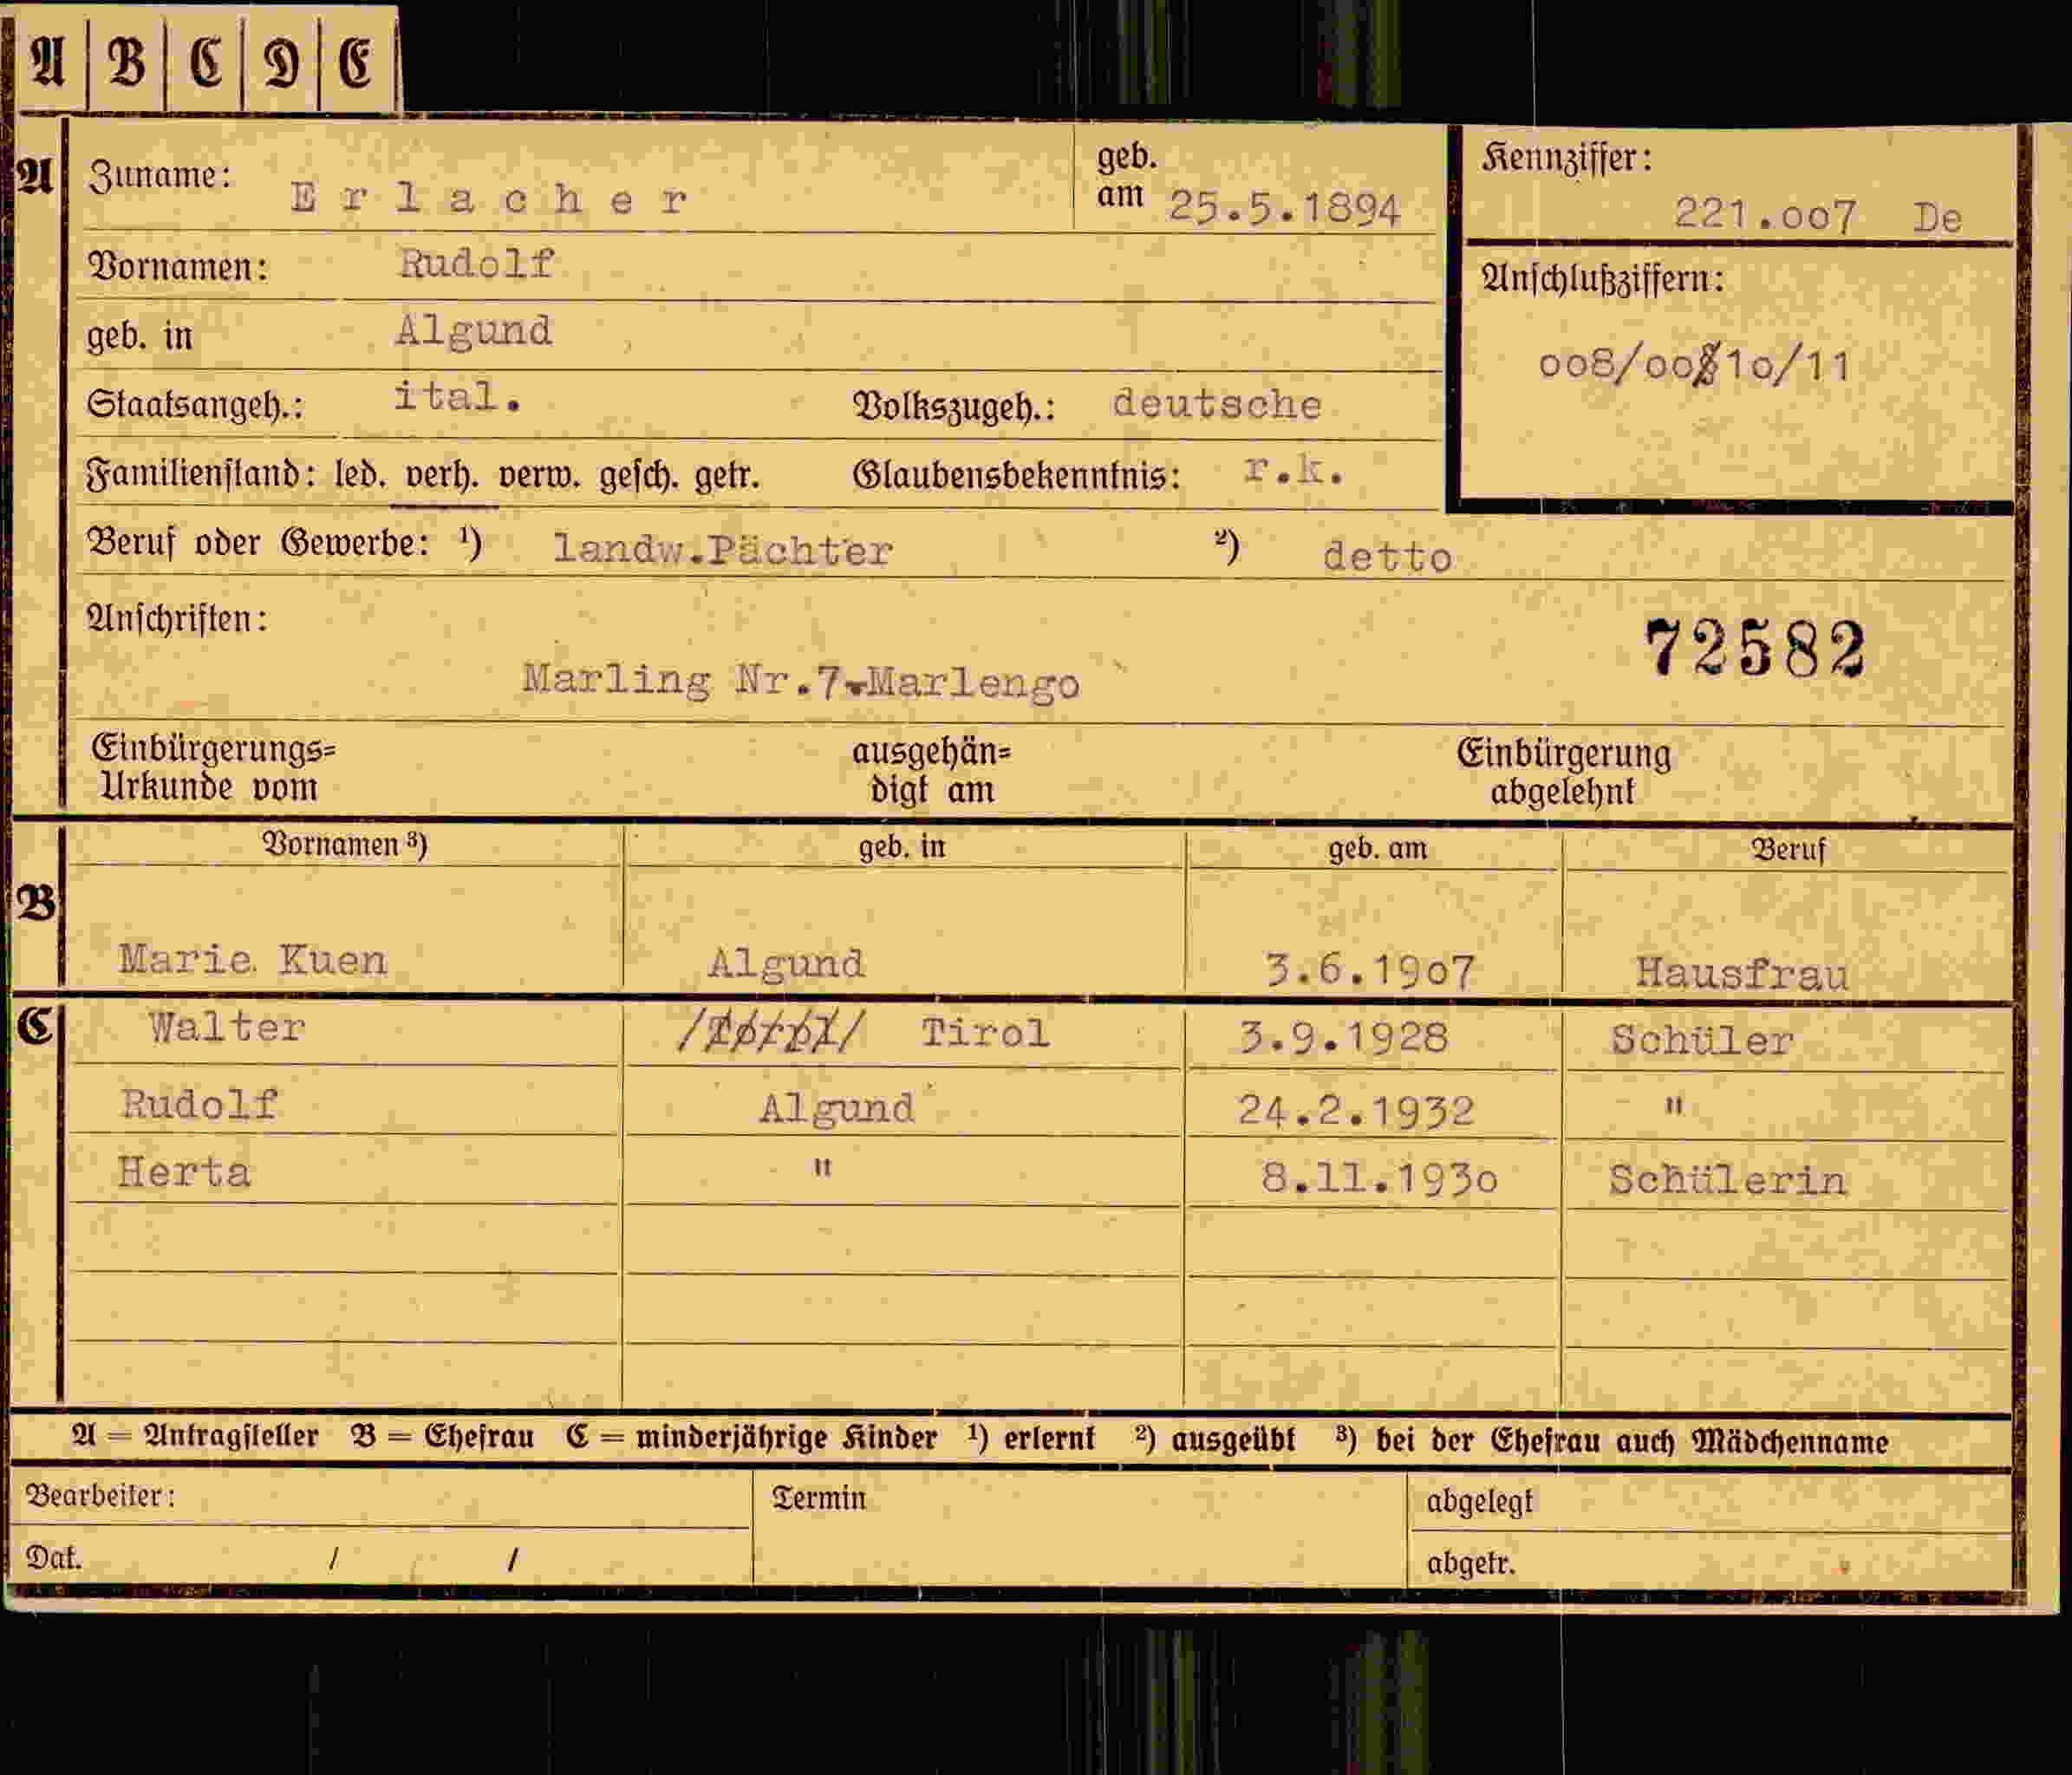 A B C D E
A Zuname: Erlacher geb. am 25.5.1894 Kennziffer: 221.oo7 De
Vornamen: Rudolf
geb. in Algund
Anschlußziffern:
oo8/oo 1o/11
Staatsangeh.: ital. Volkszugeh.: deutsche
Familienstand: led. verh. verw. gesch. getr. Glaubensbekenntnis: r.k.
Beruf oder Gewerbe: ¹) landw.Pächter ²) detto
Anschriften:
72582
Marling Nr.7-Marlengo
Einbürgerungs= ausgehän= Einbürgerung
Urkunde vom digt am abgelehnt
Vornamen ³) geb. in geb. am Beruf
B
Marie Kuen Algund 3.6.19o7 Hausfrau
C Walter Tirol 3.9.1928 Schüler
Rudolf Algund 24.2.1932 "
Herta " 8.11.193o Schülerin
A = Antragsteller B = Ehefrau C = minderjährige Kinder ¹) erlernt ²) ausgeübt ³) bei der Ehefrau auch Mädchenname
Bearbeiter: Termin abgelegt
Dat. / / abgetr.